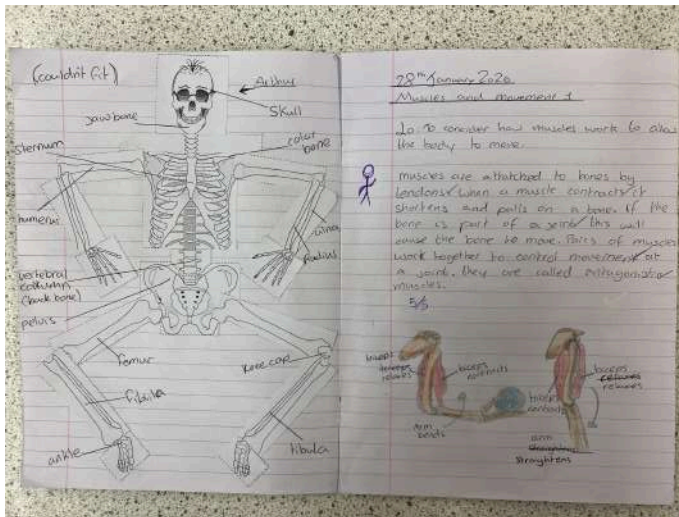 (couldn't fit)
Arthur
Skull
jaw bone
sternum
colar
bone
humerus
ulna
radius
vertebral
(back bone)
pelvis
femur
knee cap
fibila
ankle
tibula
28th January 2020
Muscles and movement 1
Lo: To consider how muscles work to allow
the body to move.
muscles are athatched to bones by
tendons when a muscle contracts it
shortens and pulls on a bone. If the
bone is part of a joint this will
cause the bone to move. Pairs of muscles
work together to control movement at
a joint. they are called antagonistic
muscles.
5/5
triceps
relaxes
biceps
contracts
arm
bends
biceps
relaxes
triceps
contracts
arm
straightens